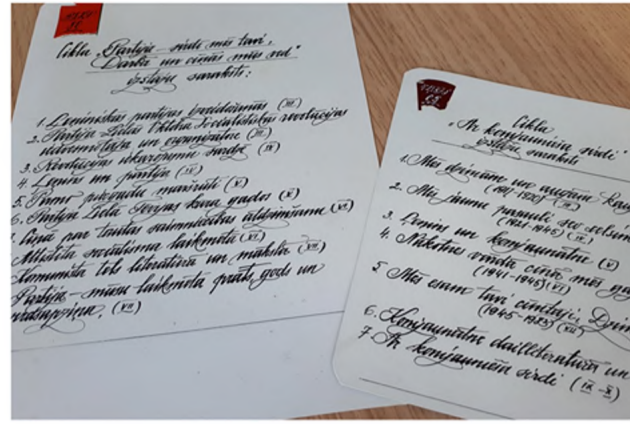 Cikla „Partija – sirdi mēs tavi,
Darbā un cīņās mēs rūd"
izstāžu saraksti:
1. Ļeņiniskās partijas (III)
2. Partija Lielās Oktobra Sociālistiskās revolūcijas
un organizētāja (III)
3. Revolūcijas sardzē (IV)
4. Ļeņins un partija (IV)
5. Pirmo piecgažu maršruti (V)
6. Partija Lielā Tēvijas kara gados (V)
Cīņā par tautas saimniecības atjaunošanu (VI)
Attīstīta sociālisma laikmets (VII)
Komunista tēls literatūrā un mākslā (VII)
Partija – mūsu laikmeta prāts, gods un
sirdsapziņa. (VII)
Cikla
„Ar komjaunieša sirdi"
izstāžu saraksti
1. Mēs dzimām un augām
2. Mū jaunu pasauli sev
(1921-1945)
3. Ļeņins un komjaunatne (V)
4. Nākotnes vārdā cīņā mēs
(1941-1945) (VI)
5. Mēs esam tavi cīnītāji, Dzim
(1945-1983) (VII)
6. Komjaunatne daiļliteratūrā un
7. Ar komjaunieša sirdi (IX-X)